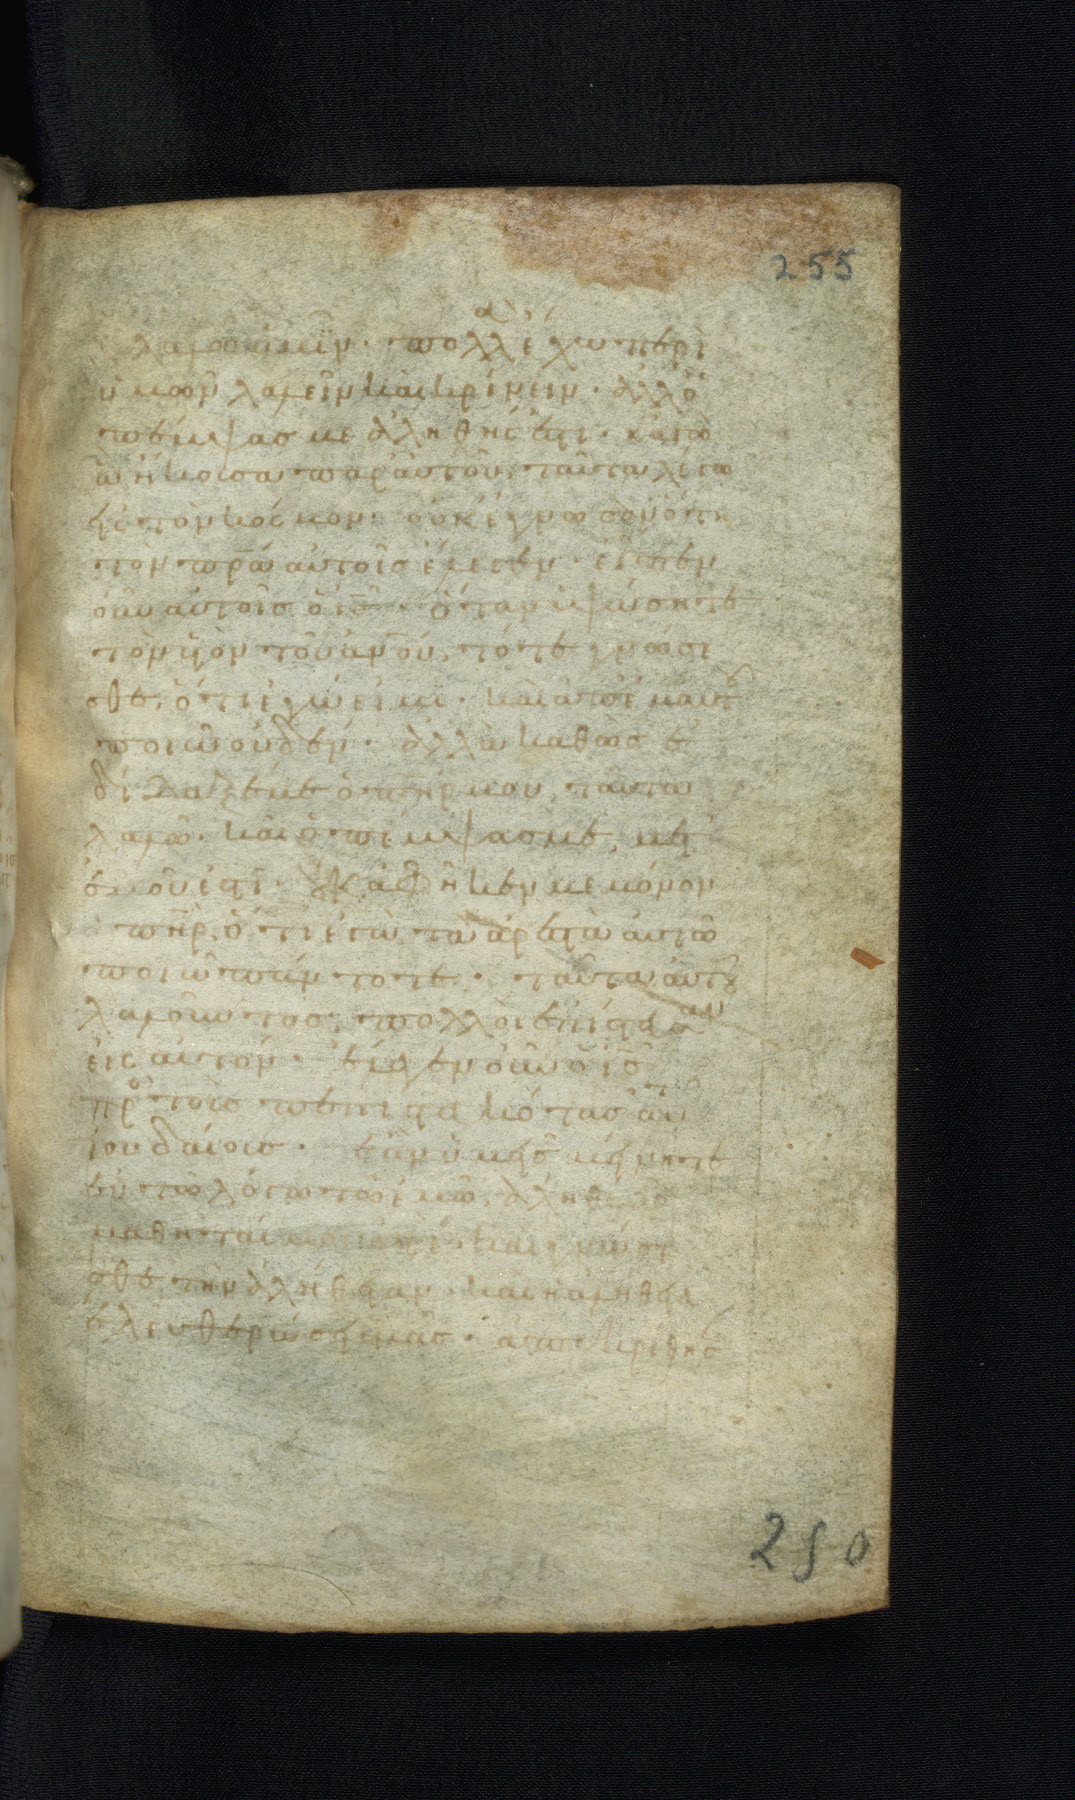 255
λαλῶ ὑμῖν· πολλὰ ἔχω περὶ
ὑμῶν λαλεῖν καὶ κρίνειν· ἀλλ' ὁ
πέμψας με ἀληθής ἐστι· κἀγὼ
ἃ ἤκουσα παρ' αὐτοῦ, ταῦτα λέγω
εἰς τὸν κόσμον· οὐκ ἔγνωσαν ὅτι
τὸν πρα αὐτοῖς ἔλεγεν· εἶπεν
οὖν αὐτοῖς ὁ ις· ὅταν ὑψώσητε
τὸν υἱὸν τοῦ ανου, τότε γνώσε
σθε, ὅτι ἐγώ εἰμι· καὶ ἀπ' ἐμαυτοῦ
ποιῶ οὐδέν· ἀλλὰ καθὼς ἐ
δίδαξέ με ὁ πηρ μου, ταῦτα
λαλῶ· καὶ ὁ πέμψας με, μετ'
ἐμοῦ ἐστι· οὐκ ἀφῆκέν με μόνον
ὁ πηρ, ὅτι ἐγὼ τὰ ἀρεστὰ αὐτῶ
ποιῶ πάντοτε· ταῦτα αὐτοῦ
λαλοῦντος, πολλοὶ ἐπίστευσαν
εἰς αὐτόν· ἔλεγεν οὖν ὁ ις
πρὸς τοὺς πεπιστευκότας αὐτῶ
ἰουδαίους· ἐὰν ὑμεῖς μείνητε
ἐν τῶ λόγω τῶ ἐμῶ, ἀληθῶς
μαθηταί μου ἐστέ· καὶ γνώσε
σθε τὴν ἀλήθειαν· καὶ ἡ ἀλήθεια
ἐλευθερώσει ὑμᾶς· ἀπεκρίθησ
250